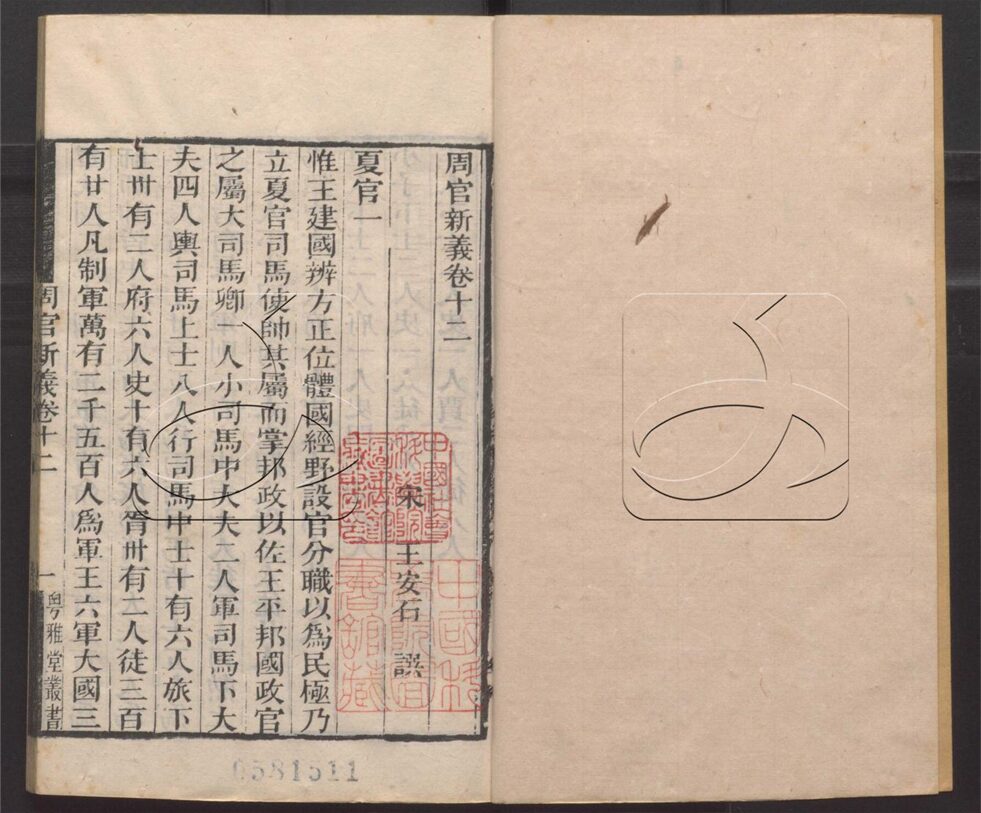 周官新義卷十二
宋 王安石 譔
夏官一
惟王建國辨方正位體國經野設官分職以為民極乃
立夏官司馬使帥其屬而掌邦政以佐王平邦國政官
之屬大司馬卿一人小司馬中大夫二人軍司馬下大
夫四人輿司馬上士八人行司馬中士十有六人旅下
士卅有二人府六人史十有六人胥卅有二人徒三百
有廿人凡制軍萬有二千五百人爲軍王六軍大國三
周官新義卷十二
一
粤雅堂叢書
0581511